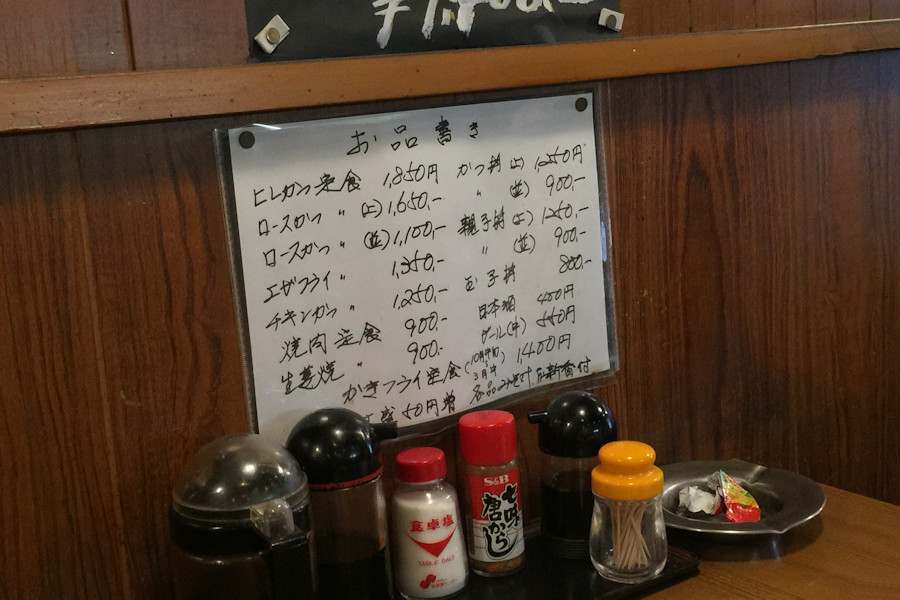 お品書き
ヒレカツ定食 1,850円
ロースかつ 〃 (上) 1,650.-
ロースかつ 〃 (並) 1,100.-
エビフライ 〃 1,350.-
チキンカツ 〃 1,250.-
焼肉定食 900.-
生姜焼 〃 900.-
かきフライ定食 (10月中旬 3月中) 1,400円
盛 50円増
かつ丼 (上) 1,250円
〃 (並) 900.-
親子丼 (上) 1250.-
〃 (並) 900.-
玉子丼 800.-
日本酒 400円
ビール(中) 550円
各品みそ汁 お新香付
食卓塩
TABLE SALT
S&B
七味
唐からし